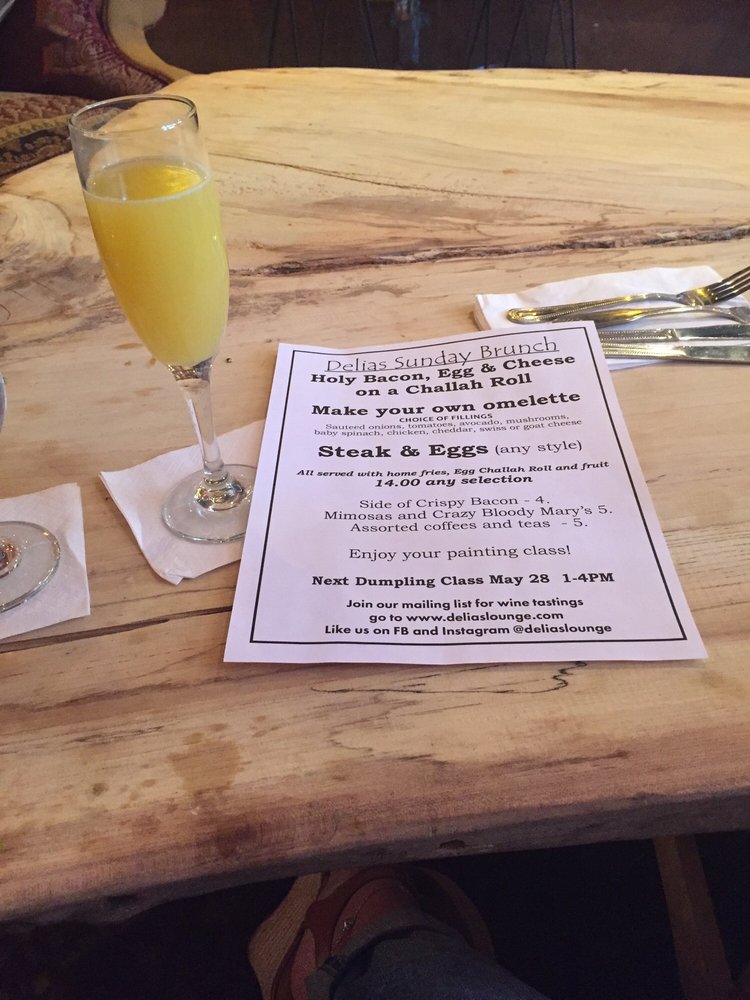 Delias Sunday Brunch
Holy Bacon, Egg & Cheese
on a Challah Roll
Make your own omelette
CHOICE OF FILLINGS
Sauteed onions, tomatoes, avocado, mushrooms,
baby spinach, chicken, cheddar, swiss or goat cheese
Steak & Eggs (any style)
All served with home fries, Egg Challah Roll and fruit
14.00 any selection
Side of Crispy Bacon - 4.
Mimosas and Crazy Bloody Mary's 5.
Assorted coffees and teas - 5.
Enjoy your painting class!
Next Dumpling Class May 28 1-4PM
Join our mailing list for wine tastings
go to www.deliaslounge.com
Like us on FB and Instagram @deliaslounge